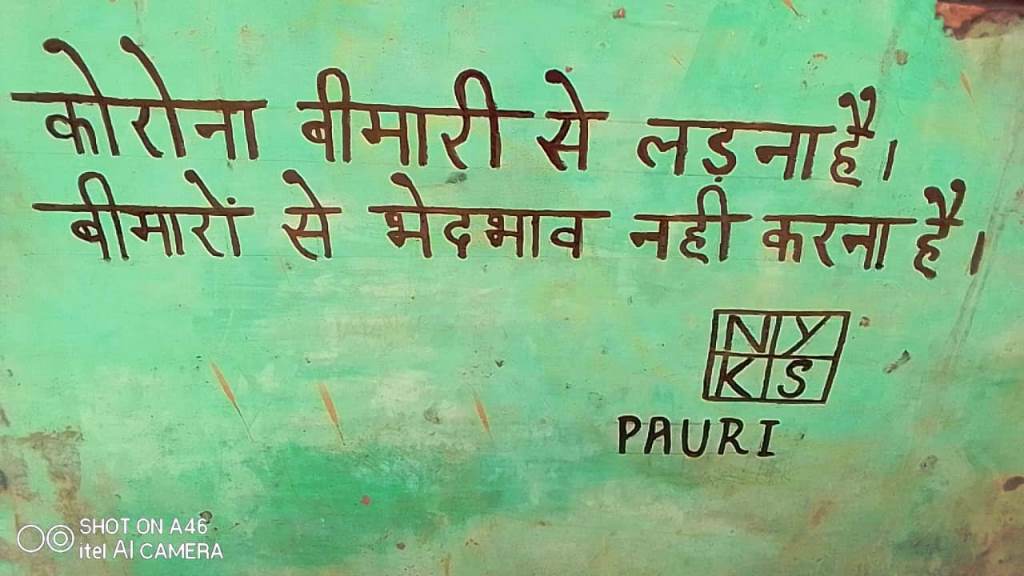 कोरोना बीमारी से लड़ना है।
बीमारों से भेदभाव नही करना है।
NY
KS
PAURI
SHOT ON A46
itel AI CAMERA